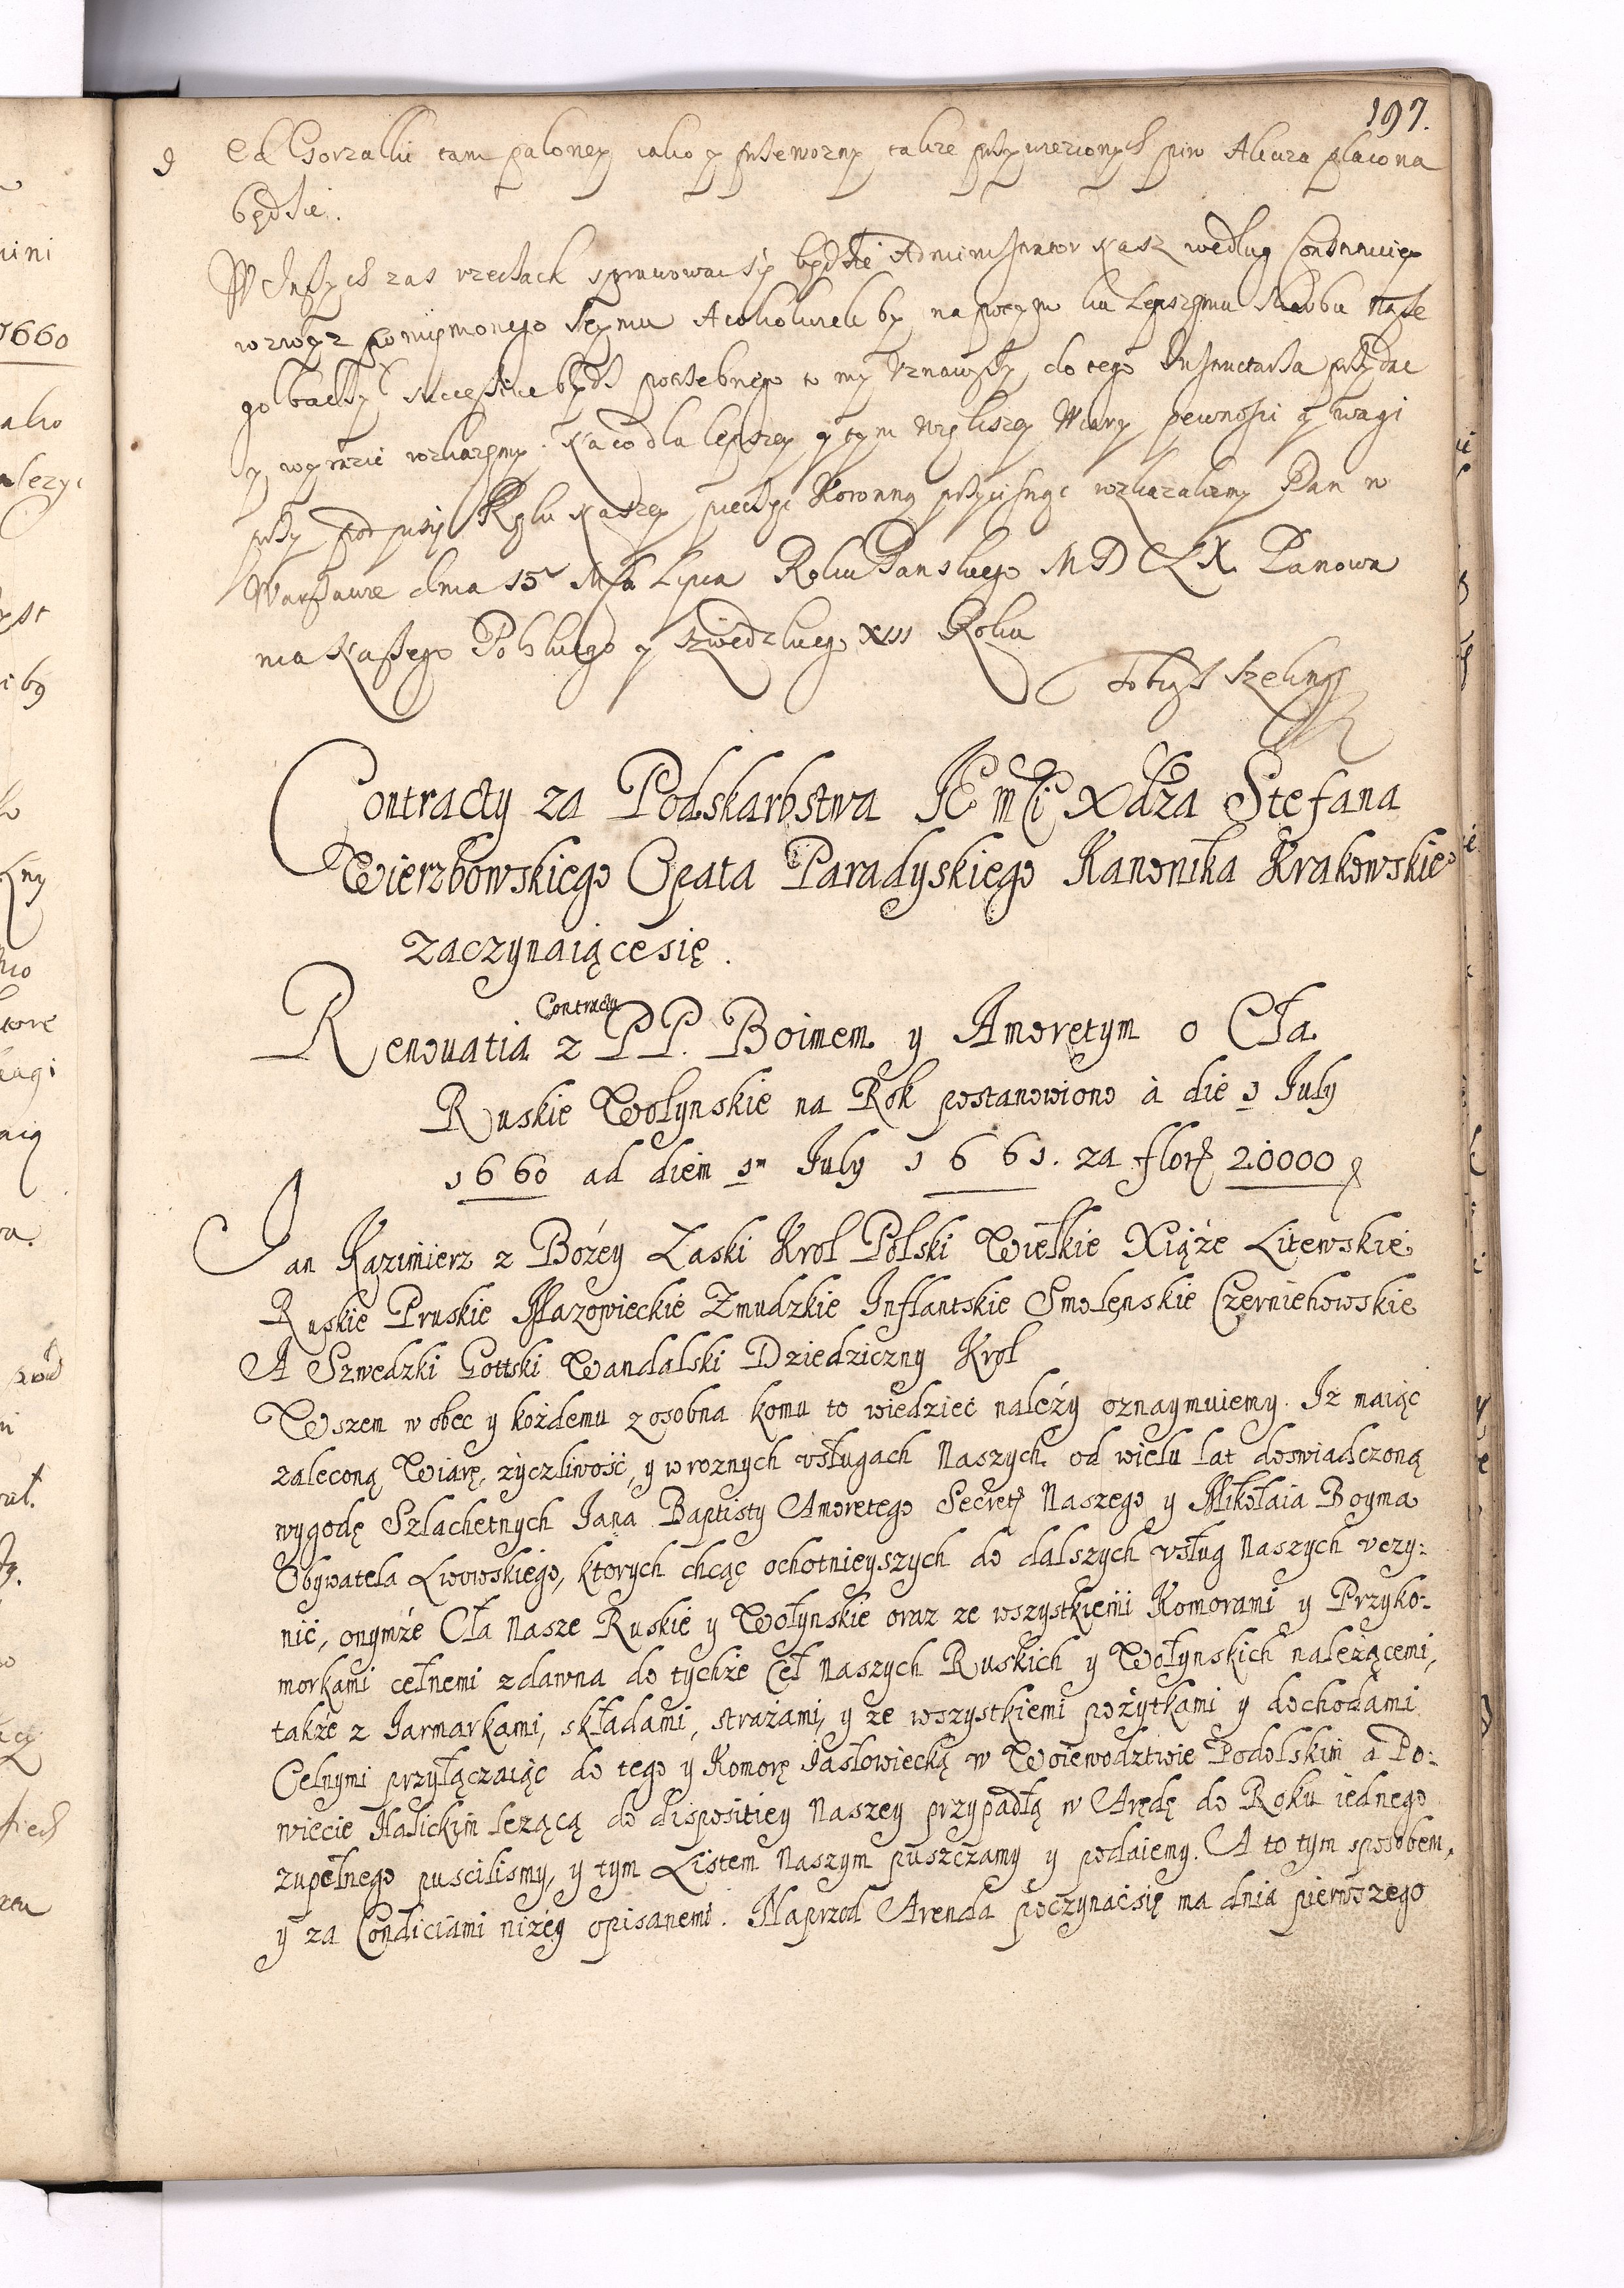 197.
9 Od Gorzałki tam paloney iako y przewozny także przywiezionych piw Akciza płacona
będzie.
W Inszych zas rzeczach sprawowac się będzie Administrator Nasz według Constituciey
wzwyz pomienionego Seymu A cokolwiek by na potym ku Lepszemu Skarbu Nasze
go będz potrzebnego to my Uznawszy do tego Instructarza przydac
y wyrazic rozkazemy. Na co dla lepszey y tym więtszey Wiary pewnosci y wagi
przy podpisie Ręki Naszey pieczęc Koronną przycisnąc rozkazalismy Dan w
Warszawie dnia 15 Msca Lipca Roku Panskiego MDCLX. Panowa
nia Naszego Polskiego y Szwedzkiego XII Roku
Contracty za Podskarbstwa JE mći Xdza Stefana
Wierzbowskiego Opata Paradyskiego Kanonika Krakowskieo
zaczynaiące się.
Contractu
Renovatia z PP. Boimem y Amoretym o Cła
Ruskie Wołynskie na Rok postanowiono à die 1 July
1660 ad diem 1m July 1661. za flor 20000
Jan Kazimierz z Bożey Łaski Krol Polski Wielkie Xiąże Litewskie
Ruskie Pruskie Mazowieckie Zmudzkie Inflantskie Smolenskie Czerniehowskie
A Szwedzki Gottski Wandalski Dziedziczny Krol
Wszem w obec y kożdemu z osobna komu to wiedzieć należy oznaymuiemy. Iż maiąc
zaleconą Wiarę, życzliwość, y w roznych vsługach Naszych od wielu lat doswiadczoną
wygodę Szlachetnych Jana Baptisty Amoretego Secret Naszego y Mikołaia Boyma
Obywatela Lwowskiego, ktorych chcąc ochotnieyszych do dalszych vsług Naszych vczy:
nić, onymże Cła Nasze Ruskie y Wołynskie oraz ze wszystkiemi Komorami y Przyko:
morkami celnemi zdawna do tychże Ceł Naszych Ruskich y Wołynskich należącemi,
także z Jarmarkami, składami, strażami, y ze wszystkiemi pożytkami y dochodami
Celnymi przyłączaiąc do tego y Komorę Jasłowiecką w Woiewodztwie Podolskim a Po:
wiecie Halickim leżącą do dispositiey Naszey przypadłą w Arędę do Roku iednego
zupełnego puscilismy, y tym Listem Naszym puszczamy y podaiemy. A to tym sposobem,
y za Condiciami niżey opisanemi. Naprzod Arenda poczynać się ma dnia pierwszego